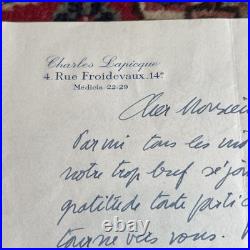 Charles Lapicque
4. Rue Froidevaux. 14e
Médicis 22-29
Cher Monsieur
Parmi tous les mo
notre trop bref séjo
gratitude toute partic
tourne vers vous.